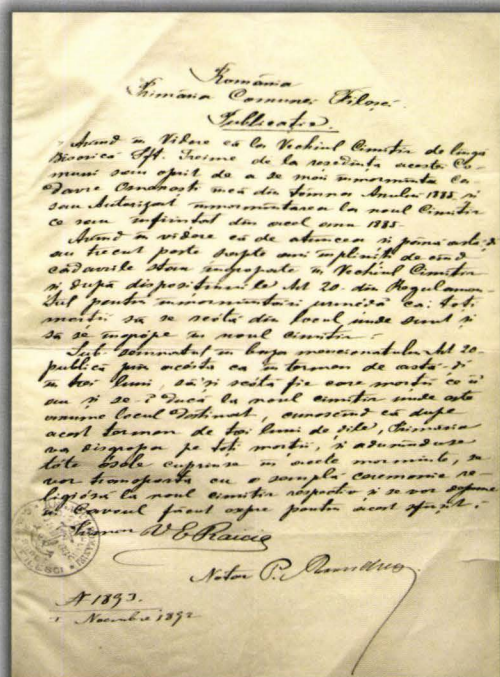 România
Primăria Comunei Filești
Publicație
Avend în Videre că la Vechiul Cimitir de lângă
Biserica Sft. Treime de la reședința acestei Co-
muni sau oprit de a se mai inmormenta Ca-
davre Omenești încă din tómna Anului 1885 și
sau Autorizat inmormentarea la noul Cimitir
ce sau înființat din acel anu 1885.
Avend în vedere că de atuncea și pěnă astă-di
au trecut peste șapte ani împliniți de când
cadavrile stau îngropate în Vechiul Cimitir
și după dispozițiunile Art 20 din Regulamen-
tul pentru inmormentări urméḑă ca toți
morții să se scótă din locul unde sunt și
să se îngrópe în noul cimitir.
Sub-semnatul în baza mencionatului Art 20
publică prin acésta ca în termen de astă-ḑi
în trei luni, să-și scótă fie care morții ce-i
au și se-i ducă la noul cimitir unde este
anume locul Destinat, cunoscênd că dupe
acest termen de trei luni de ḑile, Primăria
va disgropa pe toți morții, și adunânduse
tóte ósele cuprinse în acele morminte, se
vor transporta cu o simplă ceremonie re-
ligiósă la noul cimitir respectiv și se vor depune
Cavoul făcut espre pentru acest sfârșit.
Primar
Notar P.
N 1893
Noembre 1892